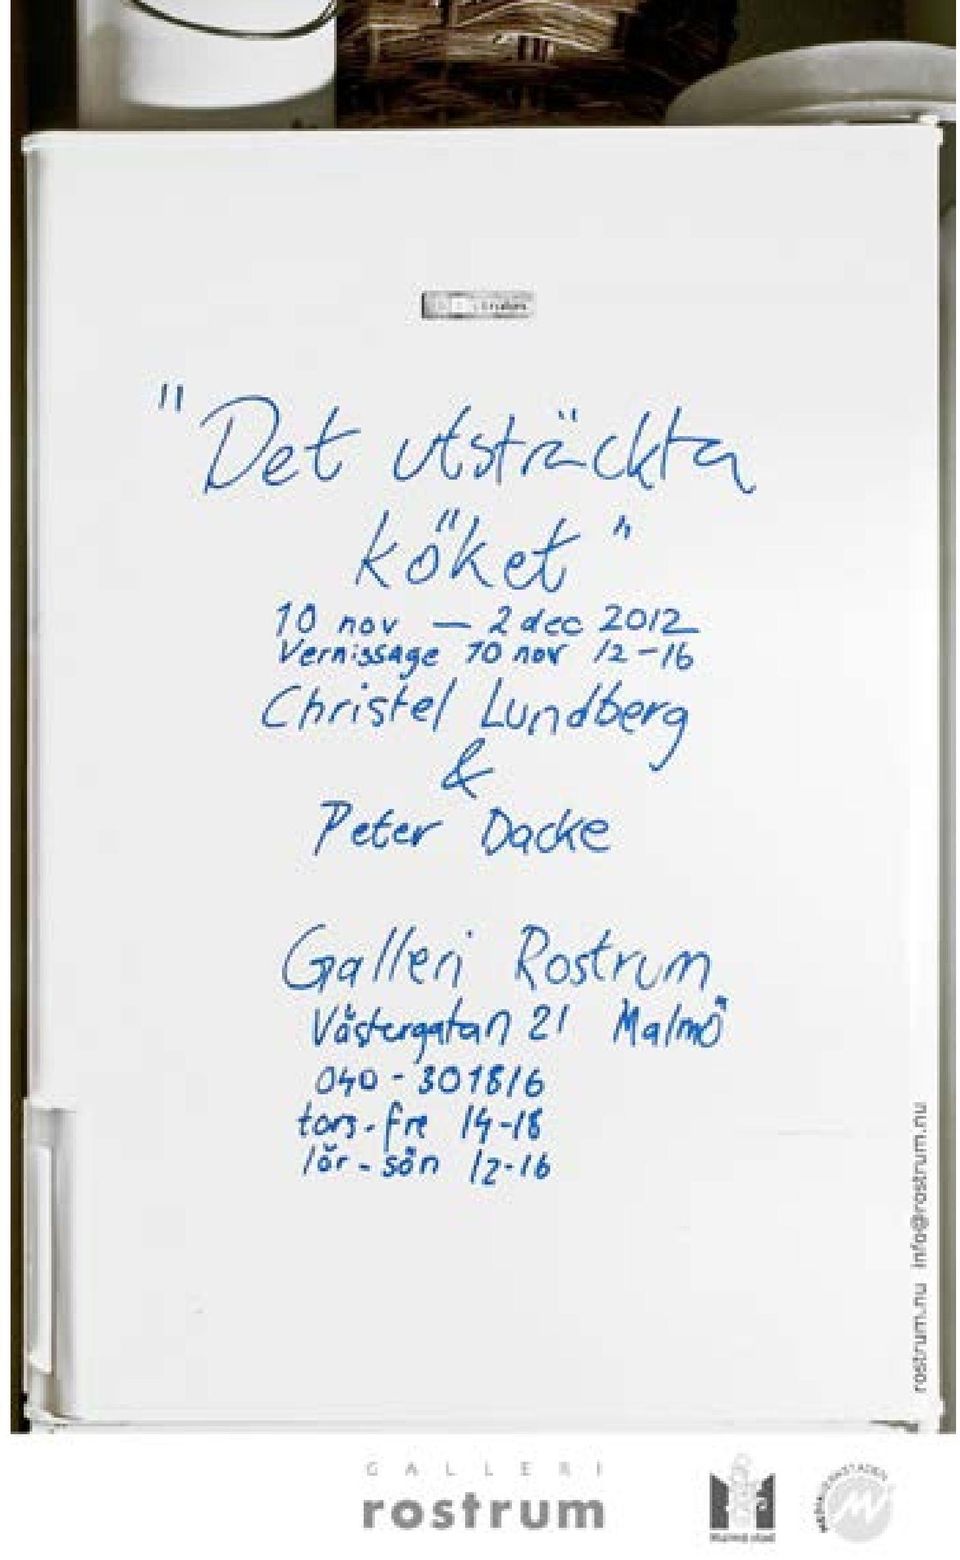 "Det utsträckta
köket"
10 nov – 2 dec 2012
Vernissage 10 nov 12-16
Christel Lundberg
&
Peter Dacke
Galleri Rostrum
Västergatan 21 Malmö
040-301816
tors-fre 14-18
lör-sön 12-16
rostrum.nu info@rostrum.nu
GALLERI
rostrum
Malmö stad